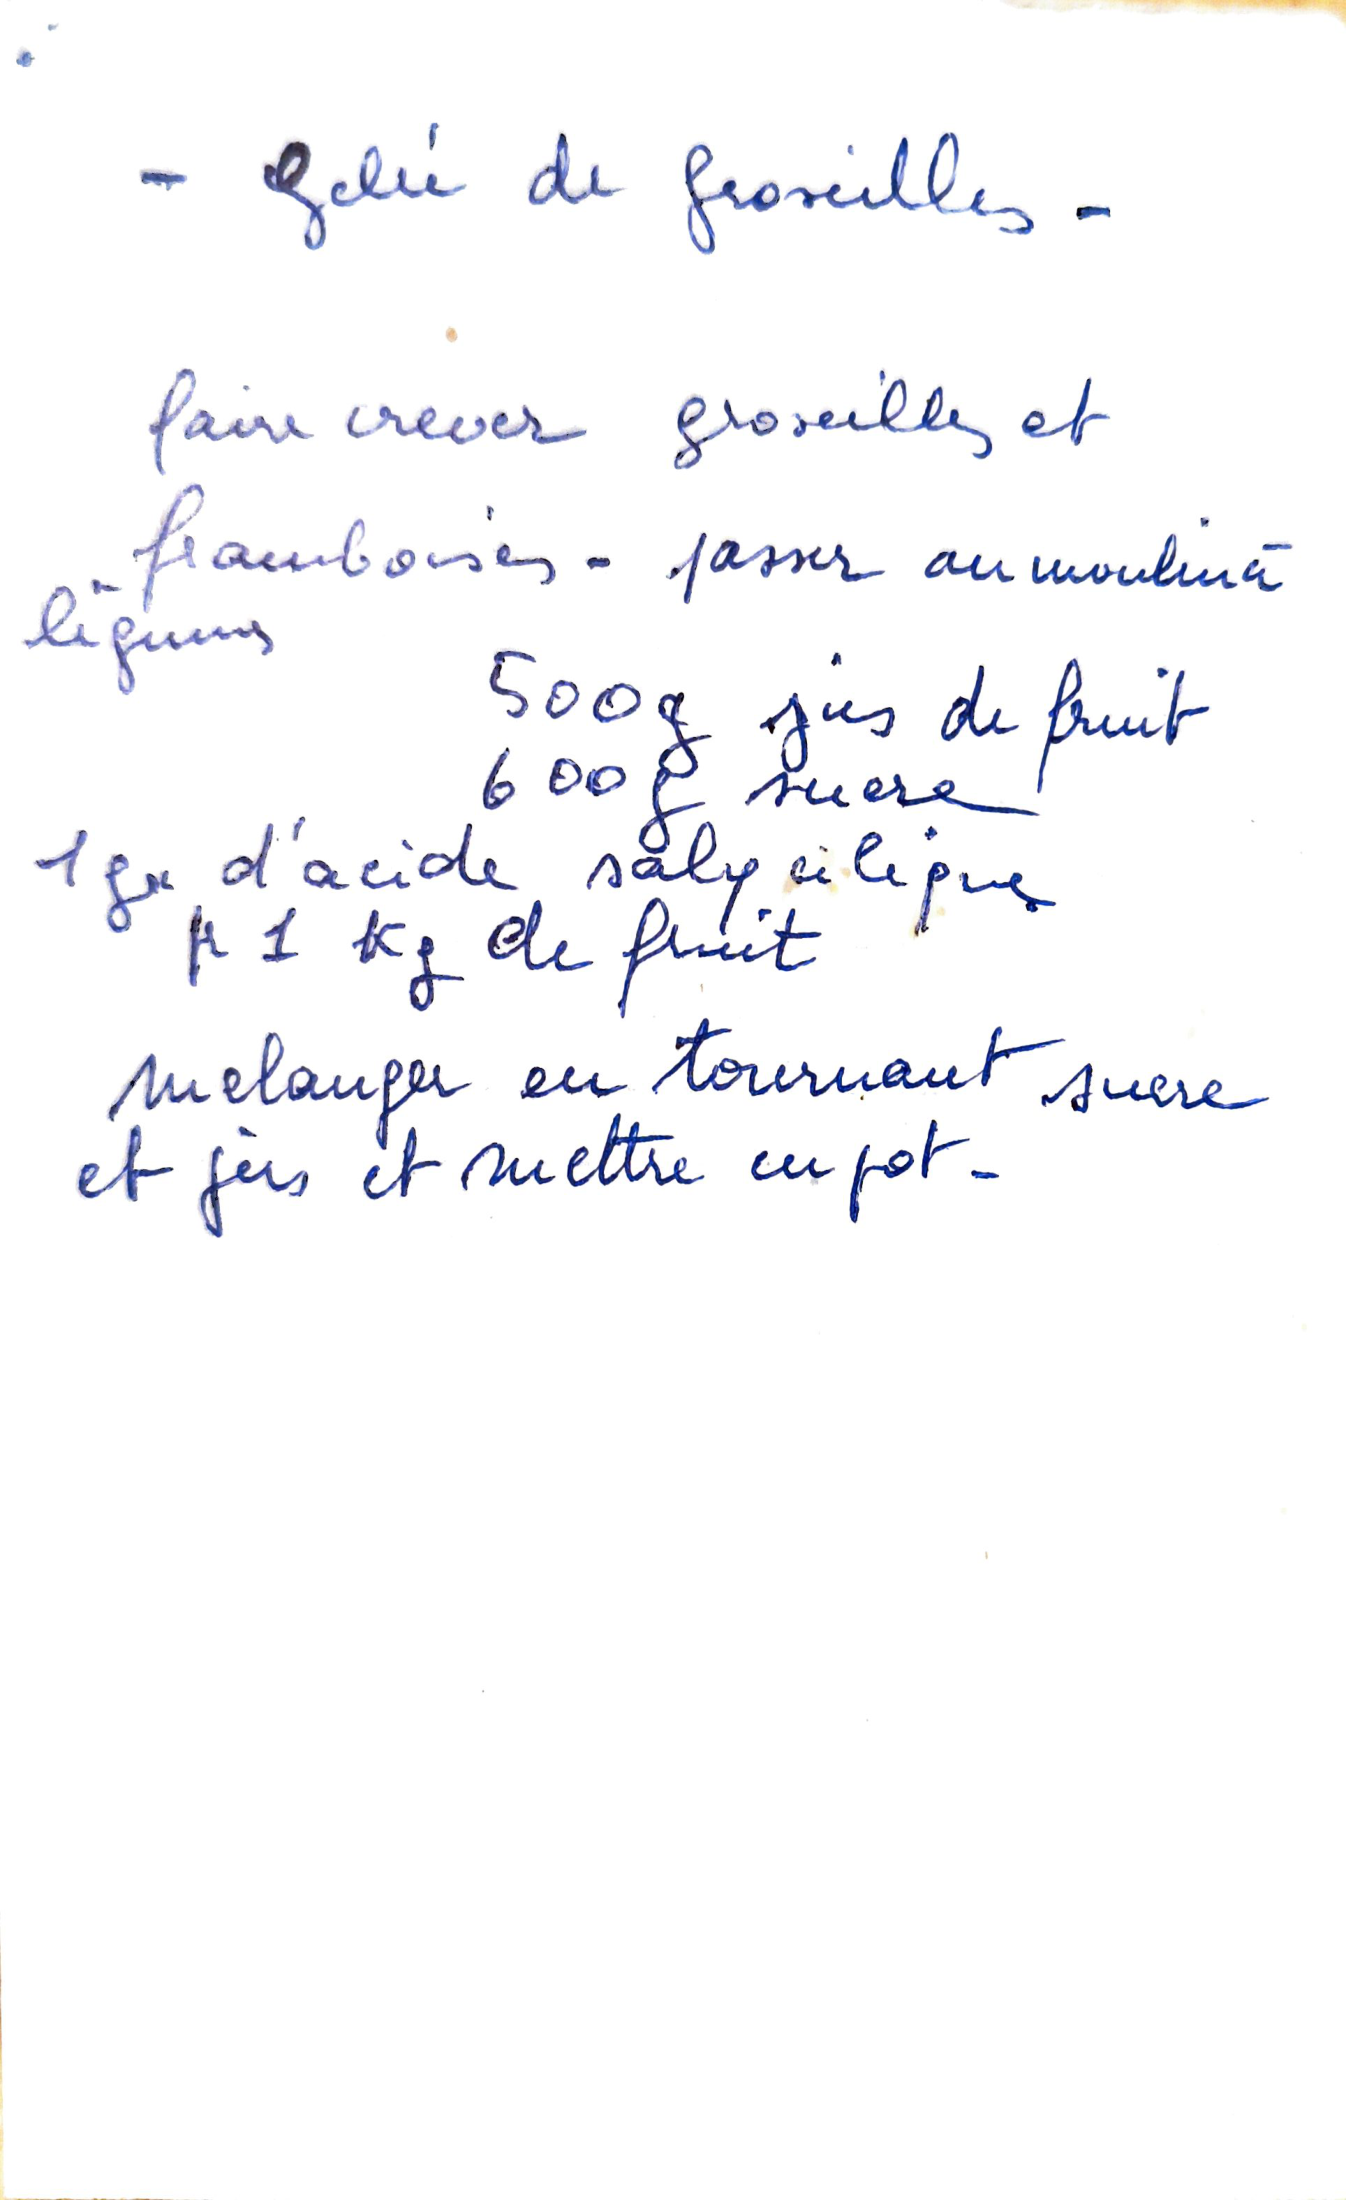 - Gelée de groseilles -
faire crever groseilles et
framboises - passer au moulin à
légumes
500g jus de fruit
600g sucre
1gr d'acide salycilique
pr 1 Kg de fruit
melanger en tournant sucre
et jus et mettre en pot -